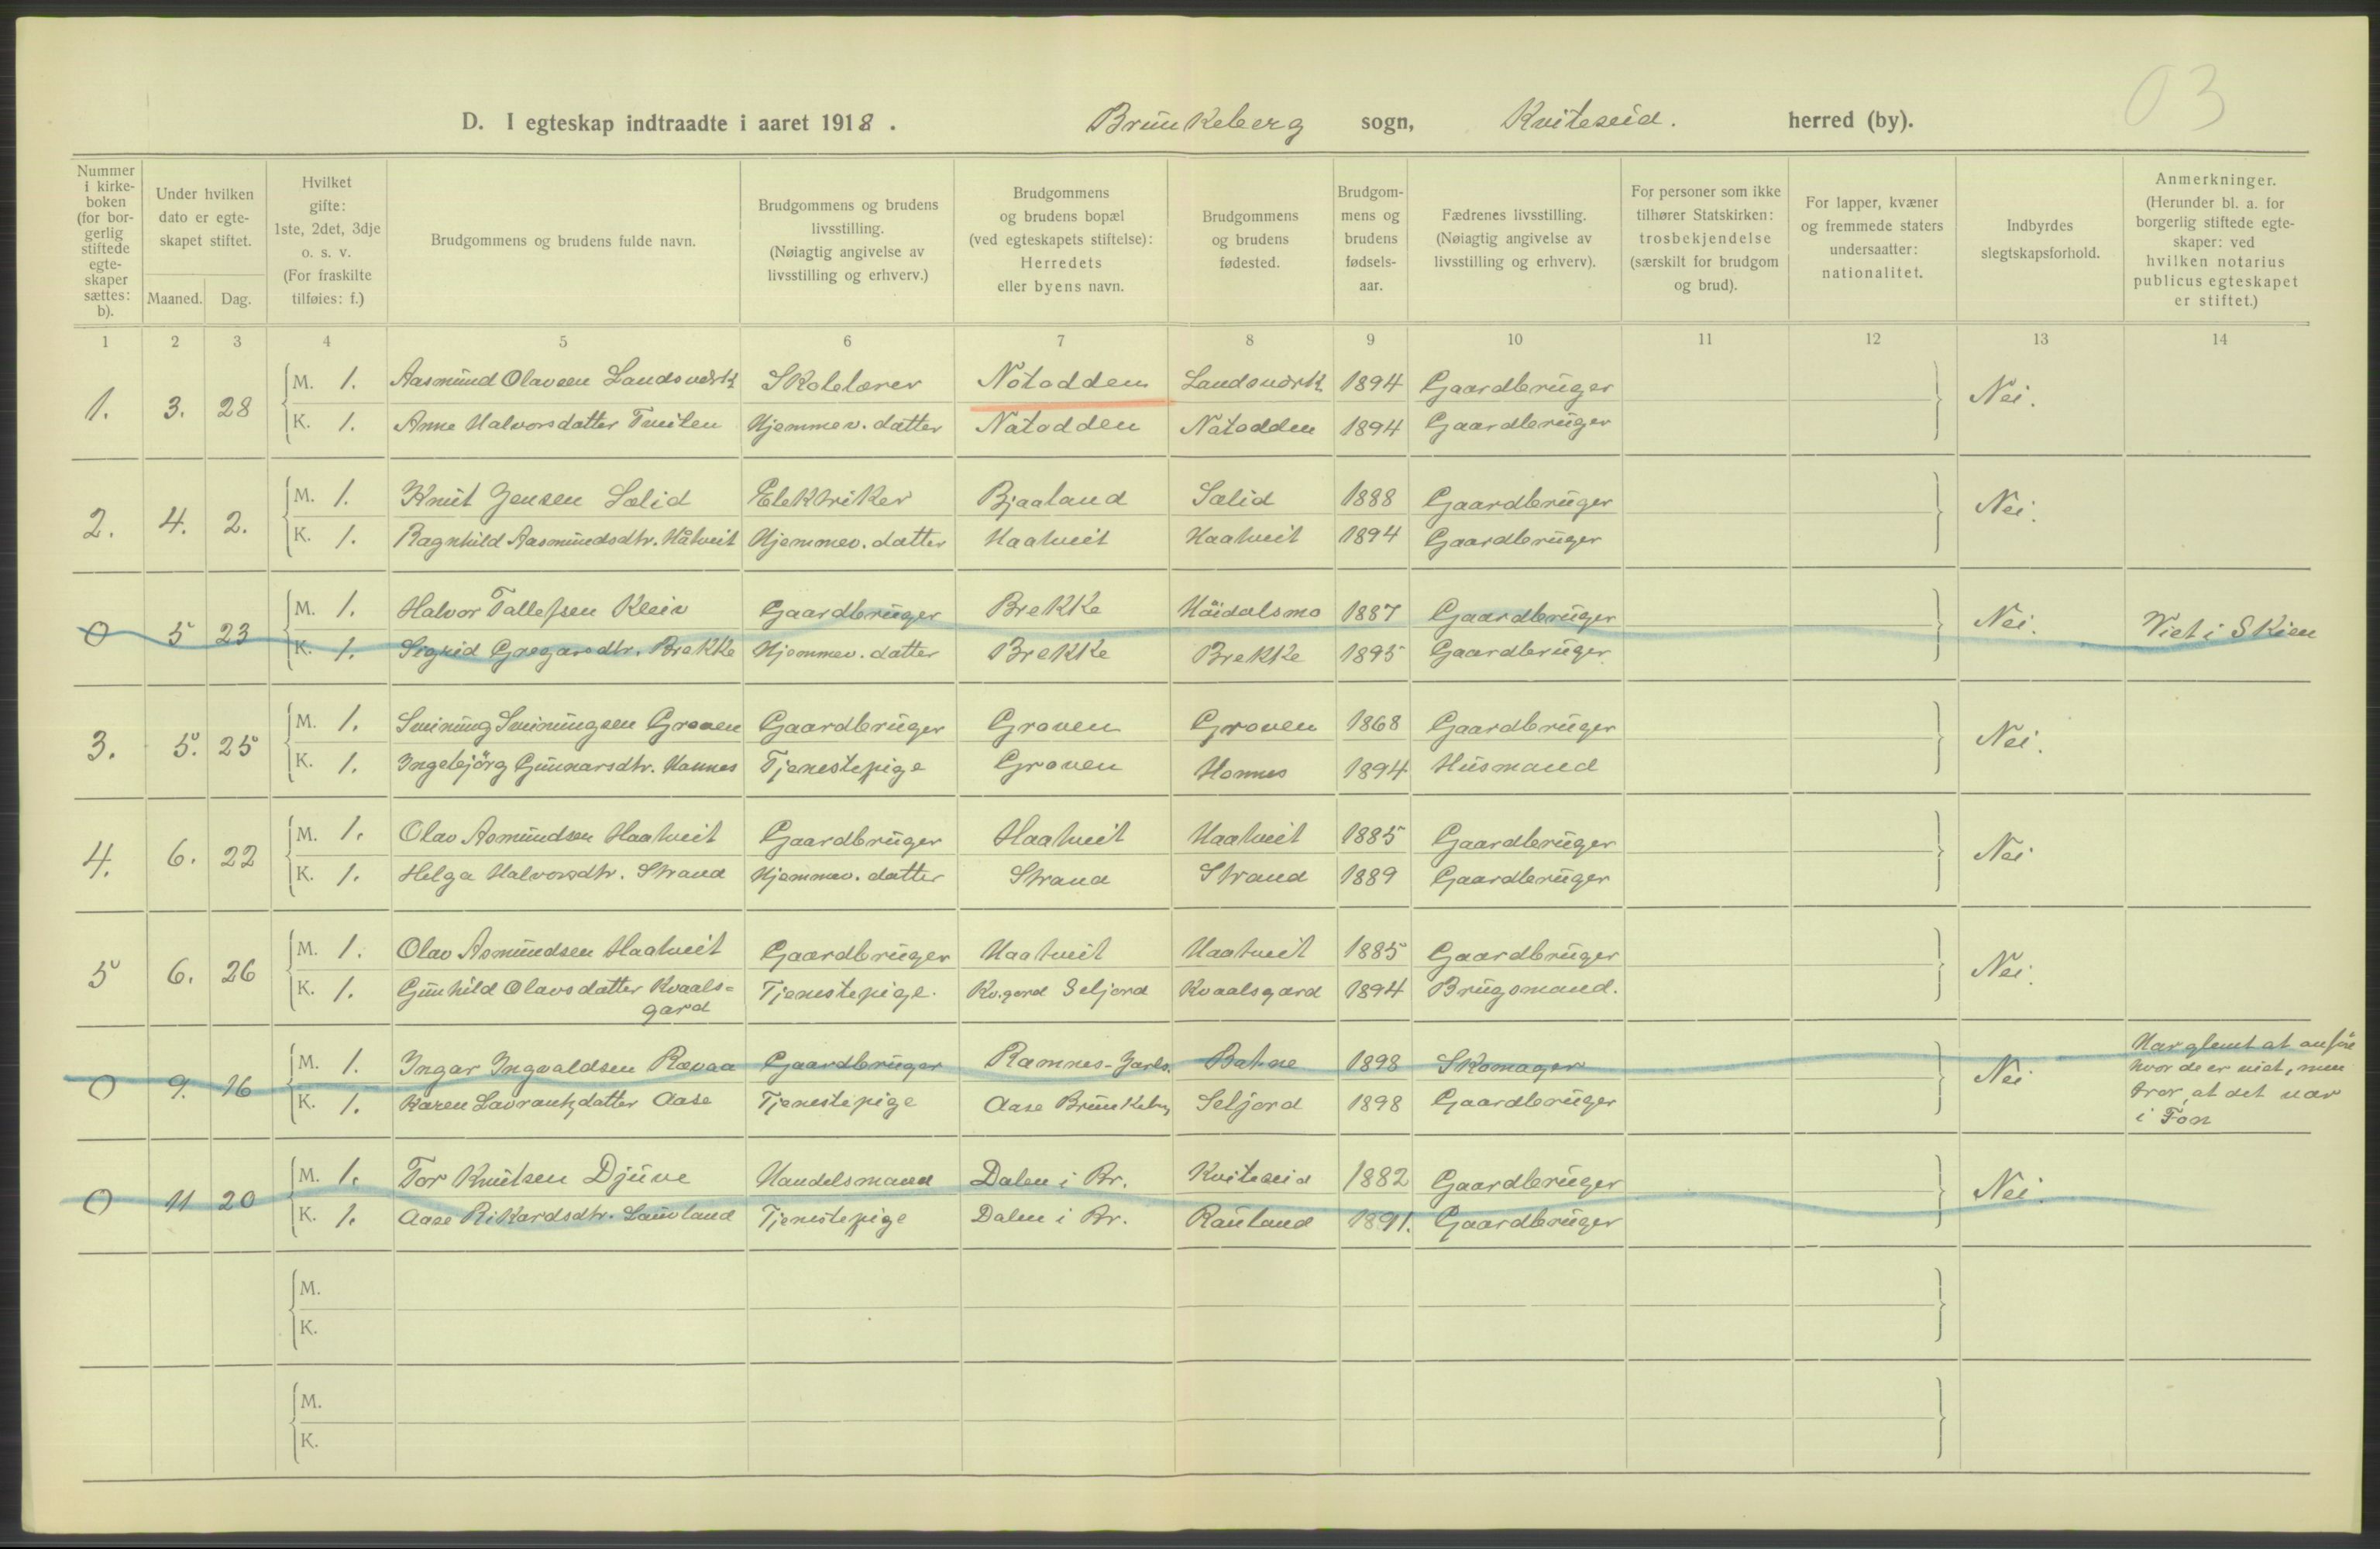 03
D. I egteskap indtraadte i aaret 1918. Brunkeberg sogn, Kviteseid. herred (by).
Nummer i kirke-boken (for bor-gerlig stiftede egte-skaper sættes: b).
Under hvilken dato er egte-skapet stiftet.
Maaned. Dag.
Hvilket gifte: 1ste, 2det, 3dje o. s. v. (For fraskilte tilføies: f.)
Brudgommens og brudens fulde navn.
Brudgommens og brudens livsstilling. (Nøiagtig angivelse av livsstilling og erhverv.)
Brudgommens og brudens bopæl (ved egteskapets stiftelse): Herredets eller byens navn.
Brudgommens og brudens fødested.
Brudgom-mens og brudens fødsels-aar.
Fædrenes livsstilling. (Nøiagtig angivelse av livsstilling og erhverv).
For personer som ikke tilhører Statskirken: trosbekjendelse (særskilt for brudgom og brud).
For lapper, kvæner og fremmede staters undersaatter: nationalitet.
Indbyrdes slegtskapsforhold.
Anmerkninger. (Herunder bl. a. for borgerlig stiftede egte-skaper: ved hvilken notarius publicus egteskapet er stiftet.)
1 2 3 4 5 6 7 8 9 10 11 12 13 14
1. 3. 28 M. 1. Aasmund Olavsen Landsverk Skolelærer Notodden Landsverk 1894 Gaardbruger Nei.
K. 1. Anne Halvorsdatter Tveiten Hjemmev. datter Notodden Notodden 1894 Gaardbruger
2. 4. 2. M. 1. Knut Jensen Lælid Elektriker Bjaaland Lælid 1888 Gaardbruger Nei.
K. 1. Ragnhild Aasmundsdtr. Håtveit Hjemmev. datter Haatveit Haatveit 1894 Gaardbruger
0 5 23 M. 1. Halvor Tallefsen Kleiv Gaardbruger Brekke Höidalsmo 1887 Gaardbruger Nei. Viet i Skien
K. 1. Sigrid Gregarsdtr. Brekke Hjemmev. datter Brekke Brekke 1895 Gaardbruger
3. 5. 25 M. 1. Sveinung Sveinungsen Groven Gaardbruger Groven Groven 1868 Gaardbruger Nei.
K. 1. Ingebjörg Gunnarsdtr. Honnes Tjenestepige Groven Honnes 1894 Husmand
4. 6. 22 M. 1. Olav Asmundsen Haatveit Gaardbruger Haatveit Haatveit 1885 Gaardbruger Nei
K. 1. Helga Halvorsdtr. Strand Hjemmev. datter Strand Strand 1889 Gaardbruger
5 6. 26 M. 1. Olav Asmundsen Haatveit Gaardbruger Haatveit Haatveit 1885 Gaardbruger Nei.
K. 1. Gunhild Olavsdatter Kvaals=
gard Tjenestepige. Kv.gard Seljord Kvaalsgard 1894 Brugsmand.
0 9. 16 M. 1. Ingar Ingvaldsen Rævaa Gaardbruger Ramnes-Jarls. 1898 Skomager Nei Har glemt at anföre
hvor de er viet, men
tror, at det var
i Fon
K. 1. Karen Lavrantzdatter Aase Tjenestepige Aase Brunkebg Seljord 1898 Gaardbruger
0 11 20 M. 1. Tor Knutsen Djuve Handelsmand Dalen i Br. Kviteseid 1882 Gaardbruger Nei.
K. 1. Aase Rikardsdtr. Lauvland Tjenestepige Dalen i Br. Rauland 1891. Gaardbruger
M.
K.
M.
K.